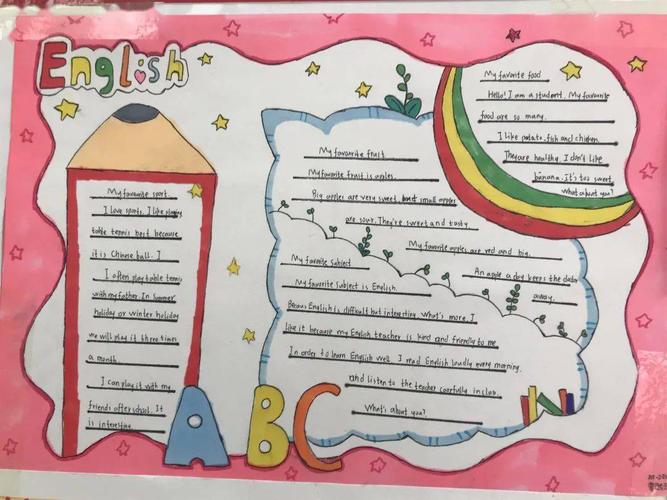 English
My favourite sport
I love sports. I like playing
table tennis best because
it is Chinese ball. I
I often play table tennis
with my father. In summer
holiday or winter holiday
we will play it three times
a month
I can play it with my
friends after school. It
is interesting.
My favourite fruit
My favourite fruit is apples.
Big apples are very sweet, but small apples
are sour. They're sweet and tasty
My favourite apples are red and big.
An apple a day keeps the
away.
My favorite subject
My favourite subject is English.
English is difficult but interesting. What's more, I
like it because my English teacher is kind and friendly to me.
In order to learn English well. I read English loudly every morning.
and listen to the teacher carefully in class.
What's about you?
My favorite food
Hello! I am a student. My favourite
food are so many.
I like potato, fish and chicken.
They are healthy. I don't like
banana. It's too sweet.
What about you?
ABC